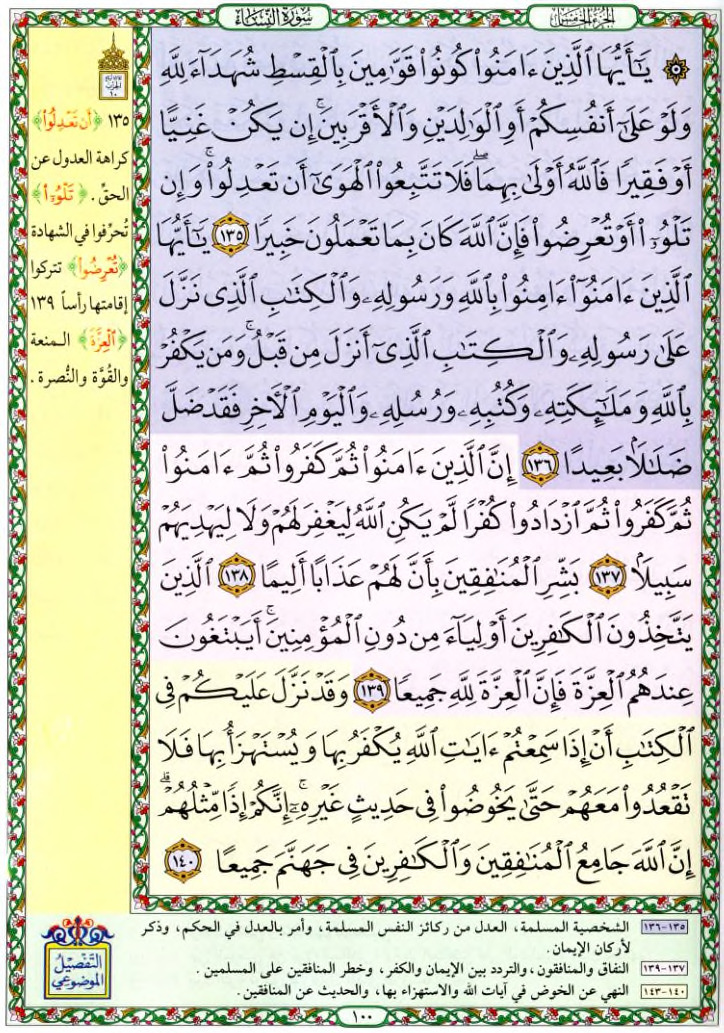 الجزء الخامس
سورة النساء
۞ يَـٰٓأَيُّهَا ٱلَّذِينَ ءَامَنُوا۟ كُونُوا۟ قَوَّٰمِينَ بِٱلْقِسْطِ شُهَدَآءَ لِلَّهِ
وَلَوْ عَلَىٰٓ أَنفُسِكُمْ أَوِ ٱلْوَٰلِدَيْنِ وَٱلْأَقْرَبِينَ ۚ إِن يَكُنْ غَنِيًّا
أَوْ فَقِيرًا فَٱللَّهُ أَوْلَىٰ بِهِمَا ۖ فَلَا تَتَّبِعُوا۟ ٱلْهَوَىٰٓ أَن تَعْدِلُوا۟ ۚ وَإِن
تَلْوُۥٓا۟ أَوْ تُعْرِضُوا۟ فَإِنَّ ٱللَّهَ كَانَ بِمَا تَعْمَلُونَ خَبِيرًا ١٣٥ يَـٰٓأَيُّهَا
ٱلَّذِينَ ءَامَنُوٓا۟ ءَامِنُوا۟ بِٱللَّهِ وَرَسُولِهِۦ وَٱلْكِتَـٰبِ ٱلَّذِى نَزَّلَ
عَلَىٰ رَسُولِهِۦ وَٱلْكِتَـٰبِ ٱلَّذِىٓ أَنزَلَ مِن قَبْلُ ۚ وَمَن يَكْفُرْ
بِٱللَّهِ وَمَلَـٰٓئِكَتِهِۦ وَكُتُبِهِۦ وَرُسُلِهِۦ وَٱلْيَوْمِ ٱلْـَٔاخِرِ فَقَدْ ضَلَّ
ضَلَـٰلًۢا بَعِيدًا ١٣٦ إِنَّ ٱلَّذِينَ ءَامَنُوا۟ ثُمَّ كَفَرُوا۟ ثُمَّ ءَامَنُوا۟
ثُمَّ كَفَرُوا۟ ثُمَّ ٱزْدَادُوا۟ كُفْرًا لَّمْ يَكُنِ ٱللَّهُ لِيَغْفِرَ لَهُمْ وَلَا لِيَهْدِيَهُمْ
سَبِيلًۢا ١٣٧ بَشِّرِ ٱلْمُنَـٰفِقِينَ بِأَنَّ لَهُمْ عَذَابًا أَلِيمًا ١٣٨ ٱلَّذِينَ
يَتَّخِذُونَ ٱلْكَـٰفِرِينَ أَوْلِيَآءَ مِن دُونِ ٱلْمُؤْمِنِينَ ۚ أَيَبْتَغُونَ
عِندَهُمُ ٱلْعِزَّةَ فَإِنَّ ٱلْعِزَّةَ لِلَّهِ جَمِيعًا ١٣٩ وَقَدْ نَزَّلَ عَلَيْكُمْ فِى
ٱلْكِتَـٰبِ أَنْ إِذَا سَمِعْتُمْ ءَايَـٰتِ ٱللَّهِ يُكْفَرُ بِهَا وَيُسْتَهْزَأُ بِهَا فَلَا
تَقْعُدُوا۟ مَعَهُمْ حَتَّىٰ يَخُوضُوا۟ فِى حَدِيثٍ غَيْرِهِۦٓ ۚ إِنَّكُمْ إِذًا مِّثْلُهُمْ ۗ
إِنَّ ٱللَّهَ جَامِعُ ٱلْمُنَـٰفِقِينَ وَٱلْكَـٰفِرِينَ فِى جَهَنَّمَ جَمِيعًا ١٤٠
١٣٥ ﴿أَن تَعْدِلُوا۟﴾
كراهة العدول عن
الحقِّ . ﴿تَلْوُۥٓا۟﴾
تُحرِّفوا في الشهادة
﴿تُعْرِضُوا۟﴾ تتركوا
إقامتها رأساً ١٣٩
﴿ٱلْعِزَّةَ﴾ المنعة
والقُوَّة والنُّصرة .
التفصيل
الموضوعي
١٣٥-١٣٦ الشخصية المسلمة، العدل من ركائز النفس المسلمة، وأمر بالعدل في الحكم، وذكر
لأركان الإيمان .
١٣٧-١٣٩ النفاق والمنافقون، والتردد بين الإيمان والكفر، وخطر المنافقين على المسلمين .
١٤٠-١٤٣ النهي عن الخوض في آيات الله والاستهزاء بها، والحديث عن المنافقين .
١٠٠